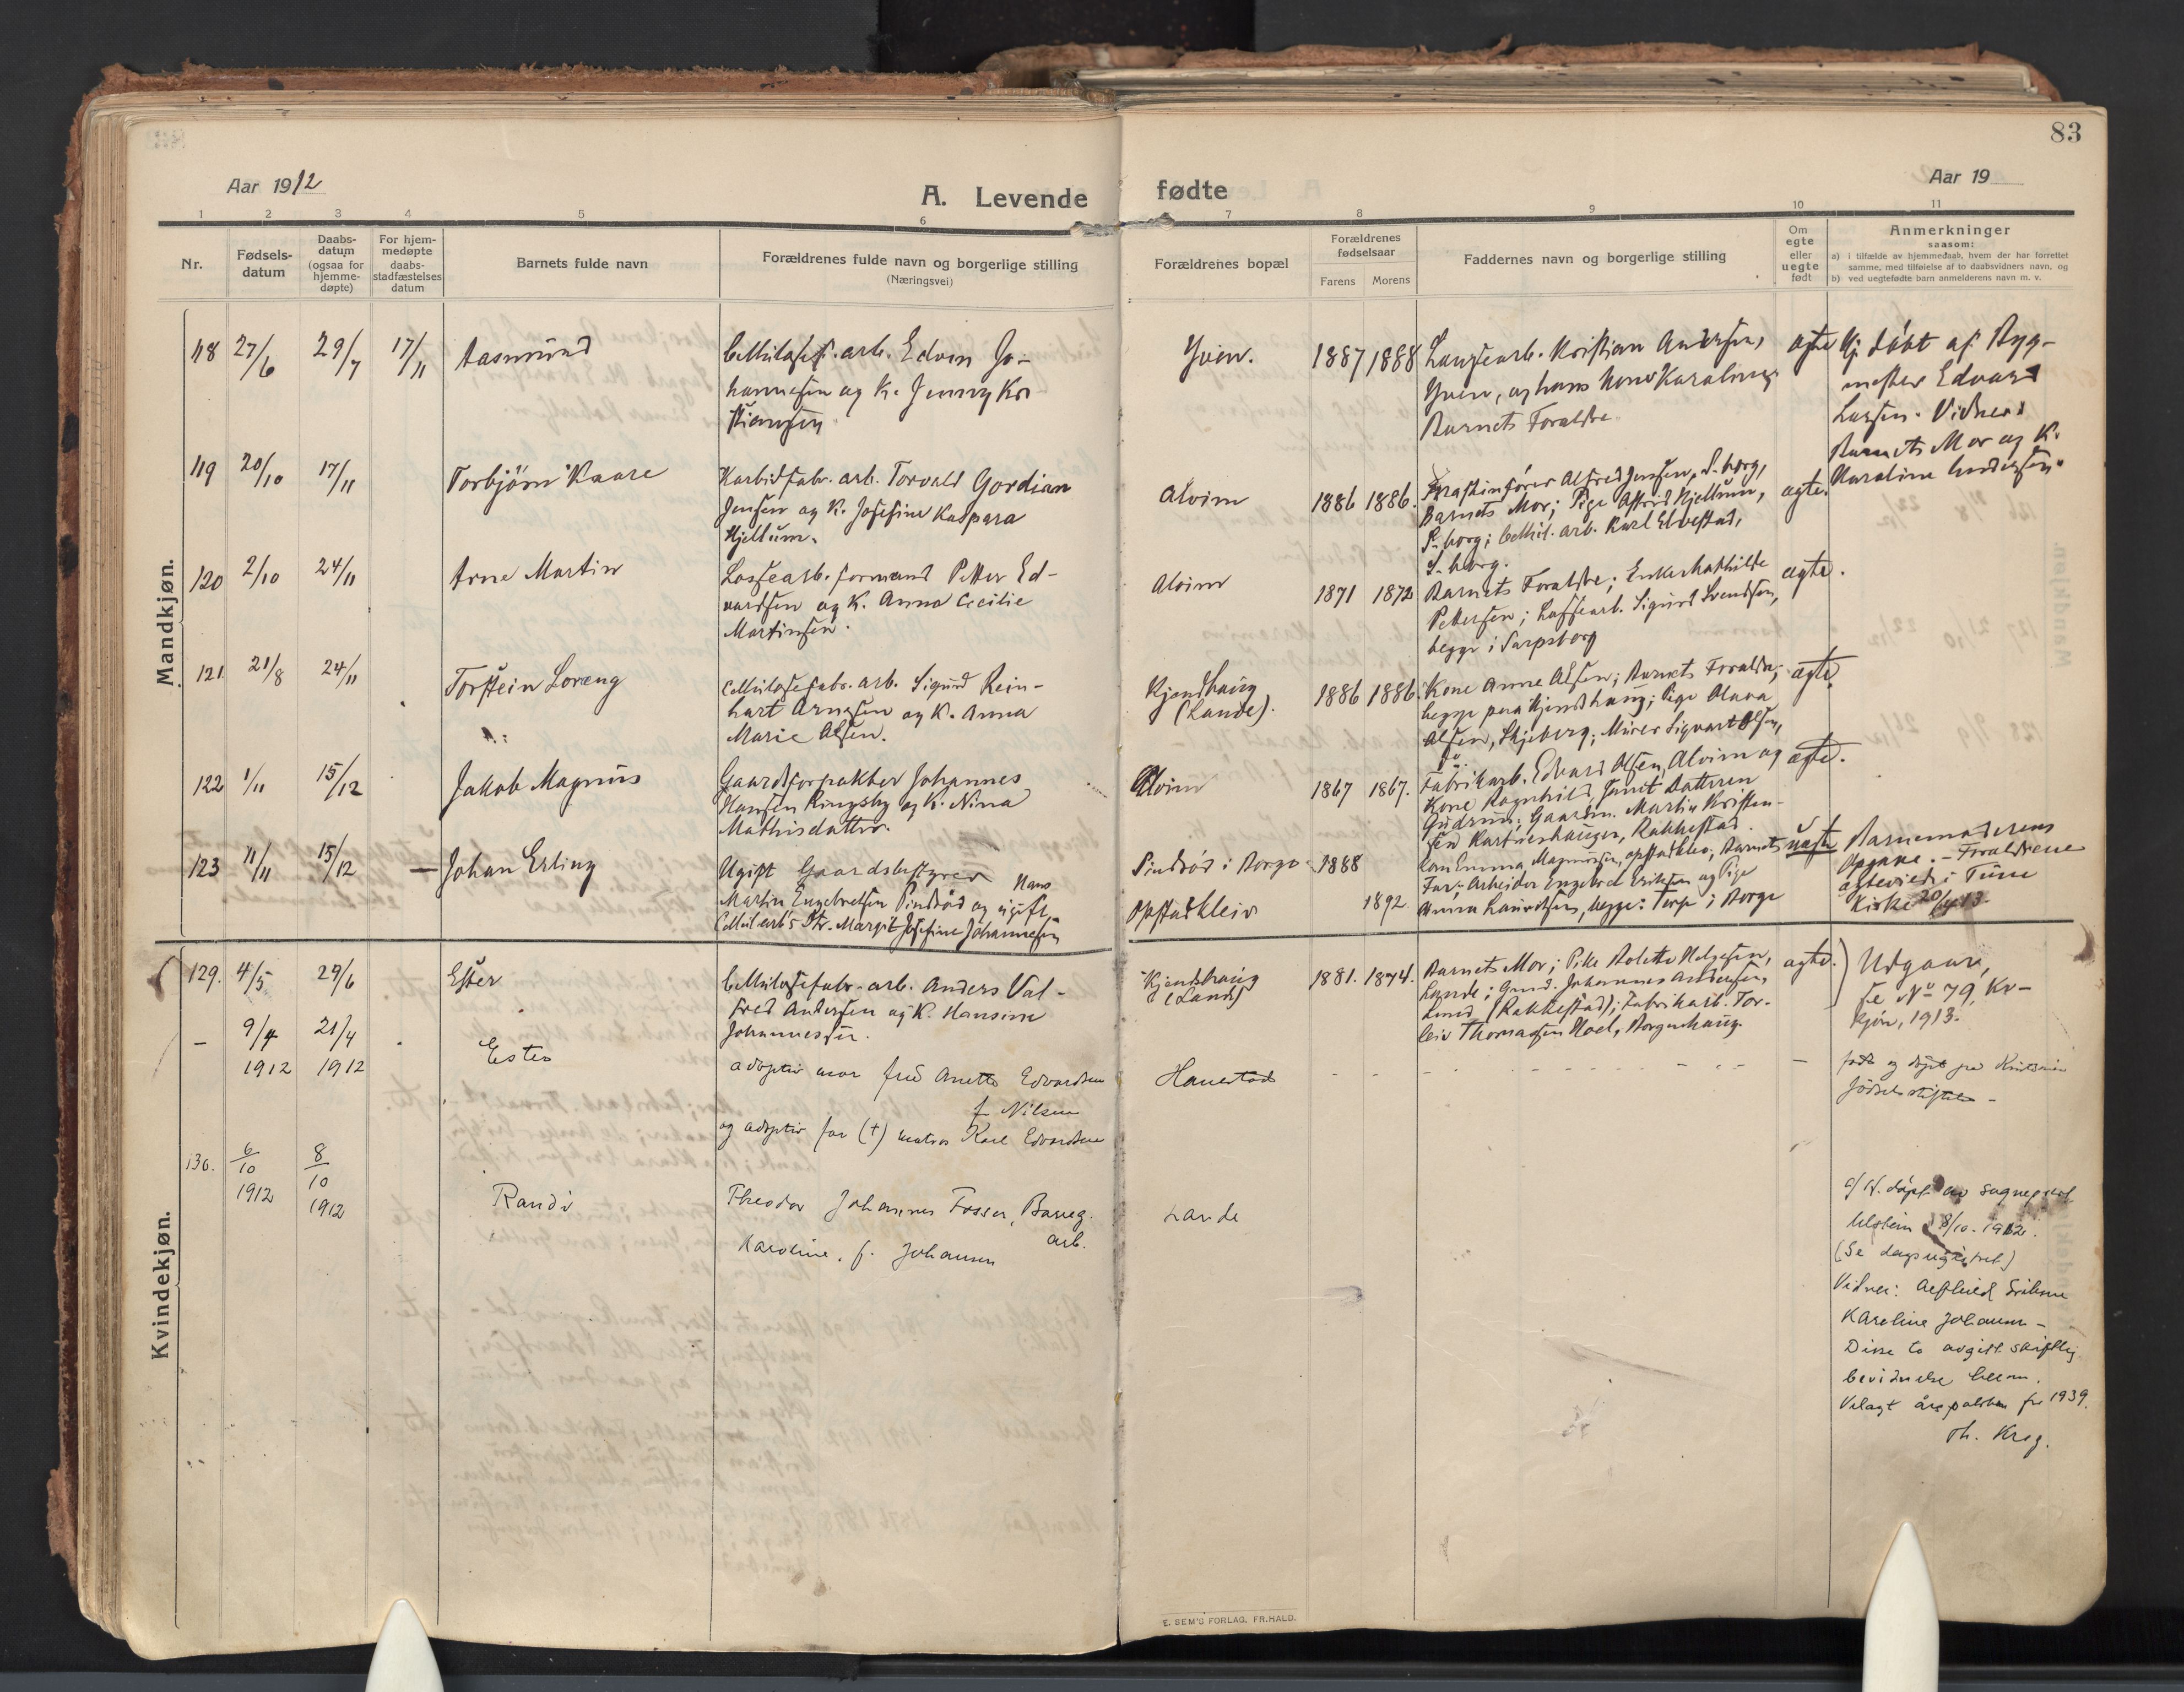 83
Aar 1912
A. Levende fødte
Aar 19
1 2 3 4 5 6 7 8 9 10 11
Nr.
Fødsels-
datum
Daabs-
datum
(ogsaa for
hjemme-
døpte)
For hjem-
medøpte
daabs-
stadfæstelses
datum
Barnets fulde navn
Forældrenes fulde navn og borgerlige stilling
(Næringsvei)
Forældrenes bopæl
Forældrenes
fødselsaar
Farens Morens
Faddernes navn og borgerlige stilling
Om
egte
eller
uegte
født
Anmerkninger
saasom:
a) i tilfælde av hjemmedaab, hvem der har forrettet
samme, med tilføielse af to daabsvidners navn, og
b) ved uegtefødte barn anmelderens navn m. v.
Mandkjøn.
118 27/6 29/7 17/11 Aasmund
Cellulosef. arb. Edvin Jo-
hannesen og K. Jenny Kri-
stiansen
Yven. 1887 1888
Lossearb. Kristian Andersen,
Yven, og hans Kone Karoline;
Barnets Forældre.
ægte
Hj. døbt af Byg-
mester Edvard
Larsen. Vidner:
Barnets Mor og K.
Karoline Andersen.
119 20/10 17/11 Torbjörn Kaare
Karbidfabr. arb. Torvald Gordian
Jensen og K. Josefine Kaspara
Kjellum.
Alvim 1886 1886.
Alfred Jensen, S.borg,
Barnets Mor; Pige Astrid Kjellum,
S.borg; Cellul. arb. Karl Elvestad,
S.borg.
ægte.
120 2/10 24/11 Arne Martin
Lossearb. formand Petter Ed-
vardsen og K. Anna Cecilie
Martinsen.
Alvim 1871 1872
Barnets Forældre; Enke Mathilde
Pettersen; Lossearb. Sigurd Svendsen,
begge i Sarpsborg
ægte.
121 21/8 24/11 Torstein Loreng
Cellulosefabr. arb. Sigurd Rein-
hart Arnesen og K. Anna
Marie Olsen.
Kjendshaug
(Lande).
1886 1886.
Kone Anne Olsen; Barnets Forældre;
begge paa Kjendshaug; Pige Olava
Olsen, Skjeberg; Murer Sigvart Olsen,
ægte.
122 1/11 15/12 Jakob Magnus
Gaardforpakter Johannes
Hansen Ringsby og K. Nina
Mathisdatter.
Alvim 1867 1867.
Fabrikarb. Edvard Olsen, Alvim og
Kone Ragnhild, samt Datteren
Gudrun; Gaardm. Martin Kristen-
sen Kartneshaugen, Rakkestad.
ægte.
123 11/11 15/12 — Johan Erling
Ugift Gaardsbestyrer Hans
Martin Engebretsen Pindsød og ugift
Cellul.arb's Dtr. Margit Josefine Johannesen
Pindsød i Borge 1888
Opstadkleiv 1892
Emma Magnussen, Opstadkleiv; Barnets
Far; Arbeider Engebret Eriksen og Pige
Anna Lauritsen, begge: Torp i Borge
uægte
Barnemoderens
Opgave. — Forældrene
ægteviet i Tune
Kirke 20/4 13.
Kvindekjøn.
129. 4/5 29/6 Ester
Cellulosefabr. arb. Anders Val-
fred Andersen og K. Hansine
Johannessen.
Kjendshaug
(Lande)
1881. 1874.
Barnets Mor; Pike Bolette Helgesen,
Lande; Gmd. Johannes Andersen
Lund (Rakkestad); Fabrikarb. Tor-
leiv Thomassen Hoel, Borgenhaug.
ægte.
Udgaar,
se No 79, Kv-
kjøn, 1913.
— 9/4 1912 21/4 1912 Ester
adoptiv mor fru Anette Edvardsen
f. Nilsen
og adoptiv far (+) matros Karl Edvardsen
Hanestad
født og døpt på
fødselsstiftelse —
130. 6/10 1912 8/10 1912 Randi
Theodor Johannes Fosser, Banearb.
Karoline, f. Johansen
Lande
døpt av sogneprest
Ulstein 8/10. 1912.
(Se dagsregistret)
Vidner: Eriksen
Karoline Johansen —
Disse to avgitt skriftlig
bevidnelse herom.
Vilagt årspakken for 1939.
Th. Krog.
E. SEM'S FORLAG, FR.HALD.